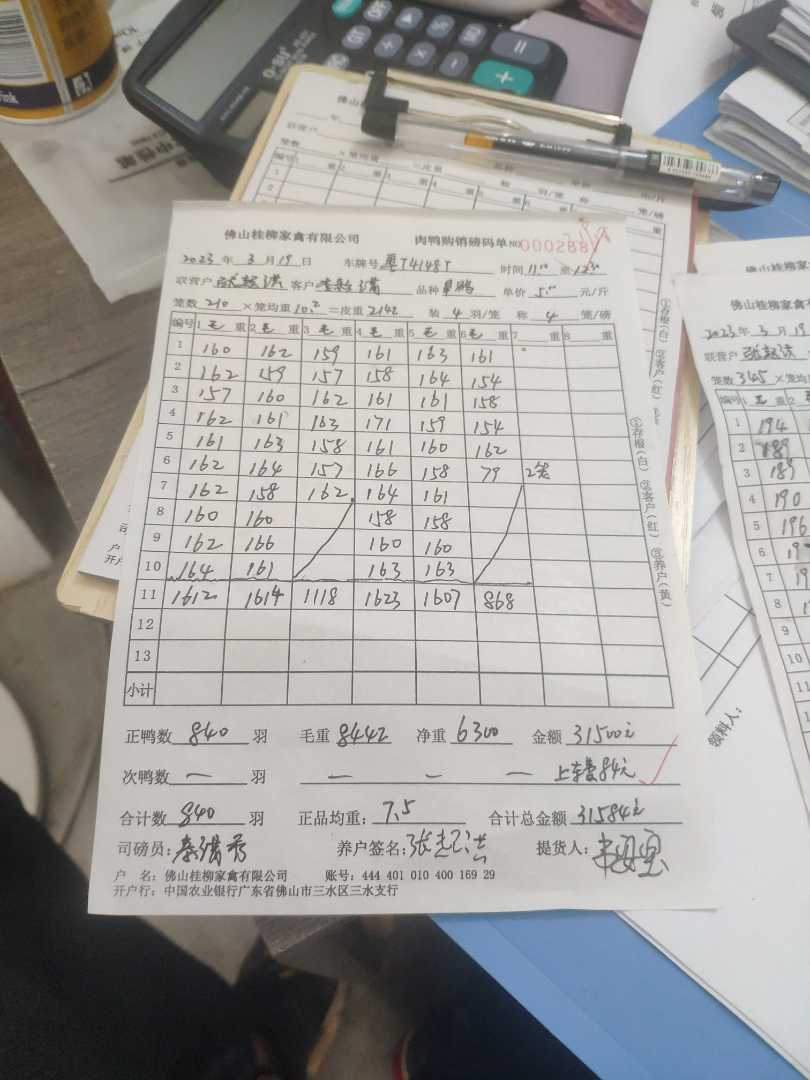 佛山桂柳家禽有限公司 肉鸭购销磅码单 NO 0002887
2023年 3月19日 车牌号 粤T4148T 时间 11:00 至 12:30
联营户 客户 品种 单价 5.00 元/斤
笼数 210 ×笼均重 10.2 =皮重 2142 装 4 羽/笼 称 4 笼/磅
编号 1 毛 重 2 毛 重 3 毛 重 4 毛 重 5 毛 重 6 毛 重 7 重 8 重
1 160 162 159 161 163 161
2 162 159 157 158 164 154
3 157 160 162 161 161 158
4 162 161 163 171 159 154
5 161 163 158 161 160 162
6 162 164 157 166 158 79 2笼
7 162 158 162 164 161
8 160 160 158 158
9 162 166 160 160
10 164 161 163 163
11 1612 1614 1118 1623 1607 868
12
13
小计
正鸭数 840 羽 毛重 8442 净重 6300 金额 31500元
次鸭数 — 羽 — — — 上车费84元
合计数 840 羽 正品均重: 7.5 合计总金额 31584元
司磅员: 养户签名: 张 提货人:
户 名: 佛山桂柳家禽有限公司 账号: 444 401 010 400 169 29
开户行: 中国农业银行广东省佛山市三水区三水支行
①存根(白) ②客户(红) ③养户(黄)
佛山桂柳家禽有限公司
2023年 3月19
联营户
笼数 345 ×笼均
编号 1 毛 重 2
1 194
2 189
3 189
4 190
5 196
6
7
8
9
10
11
领料人: